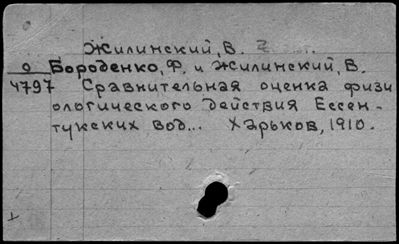 Жилинский, В.
О Бороденко, Ф. и Жилинский, В.
4797 Сравнительная оценка физи
ологического действия Ессен-
тукских вод... Харьков, 1910.